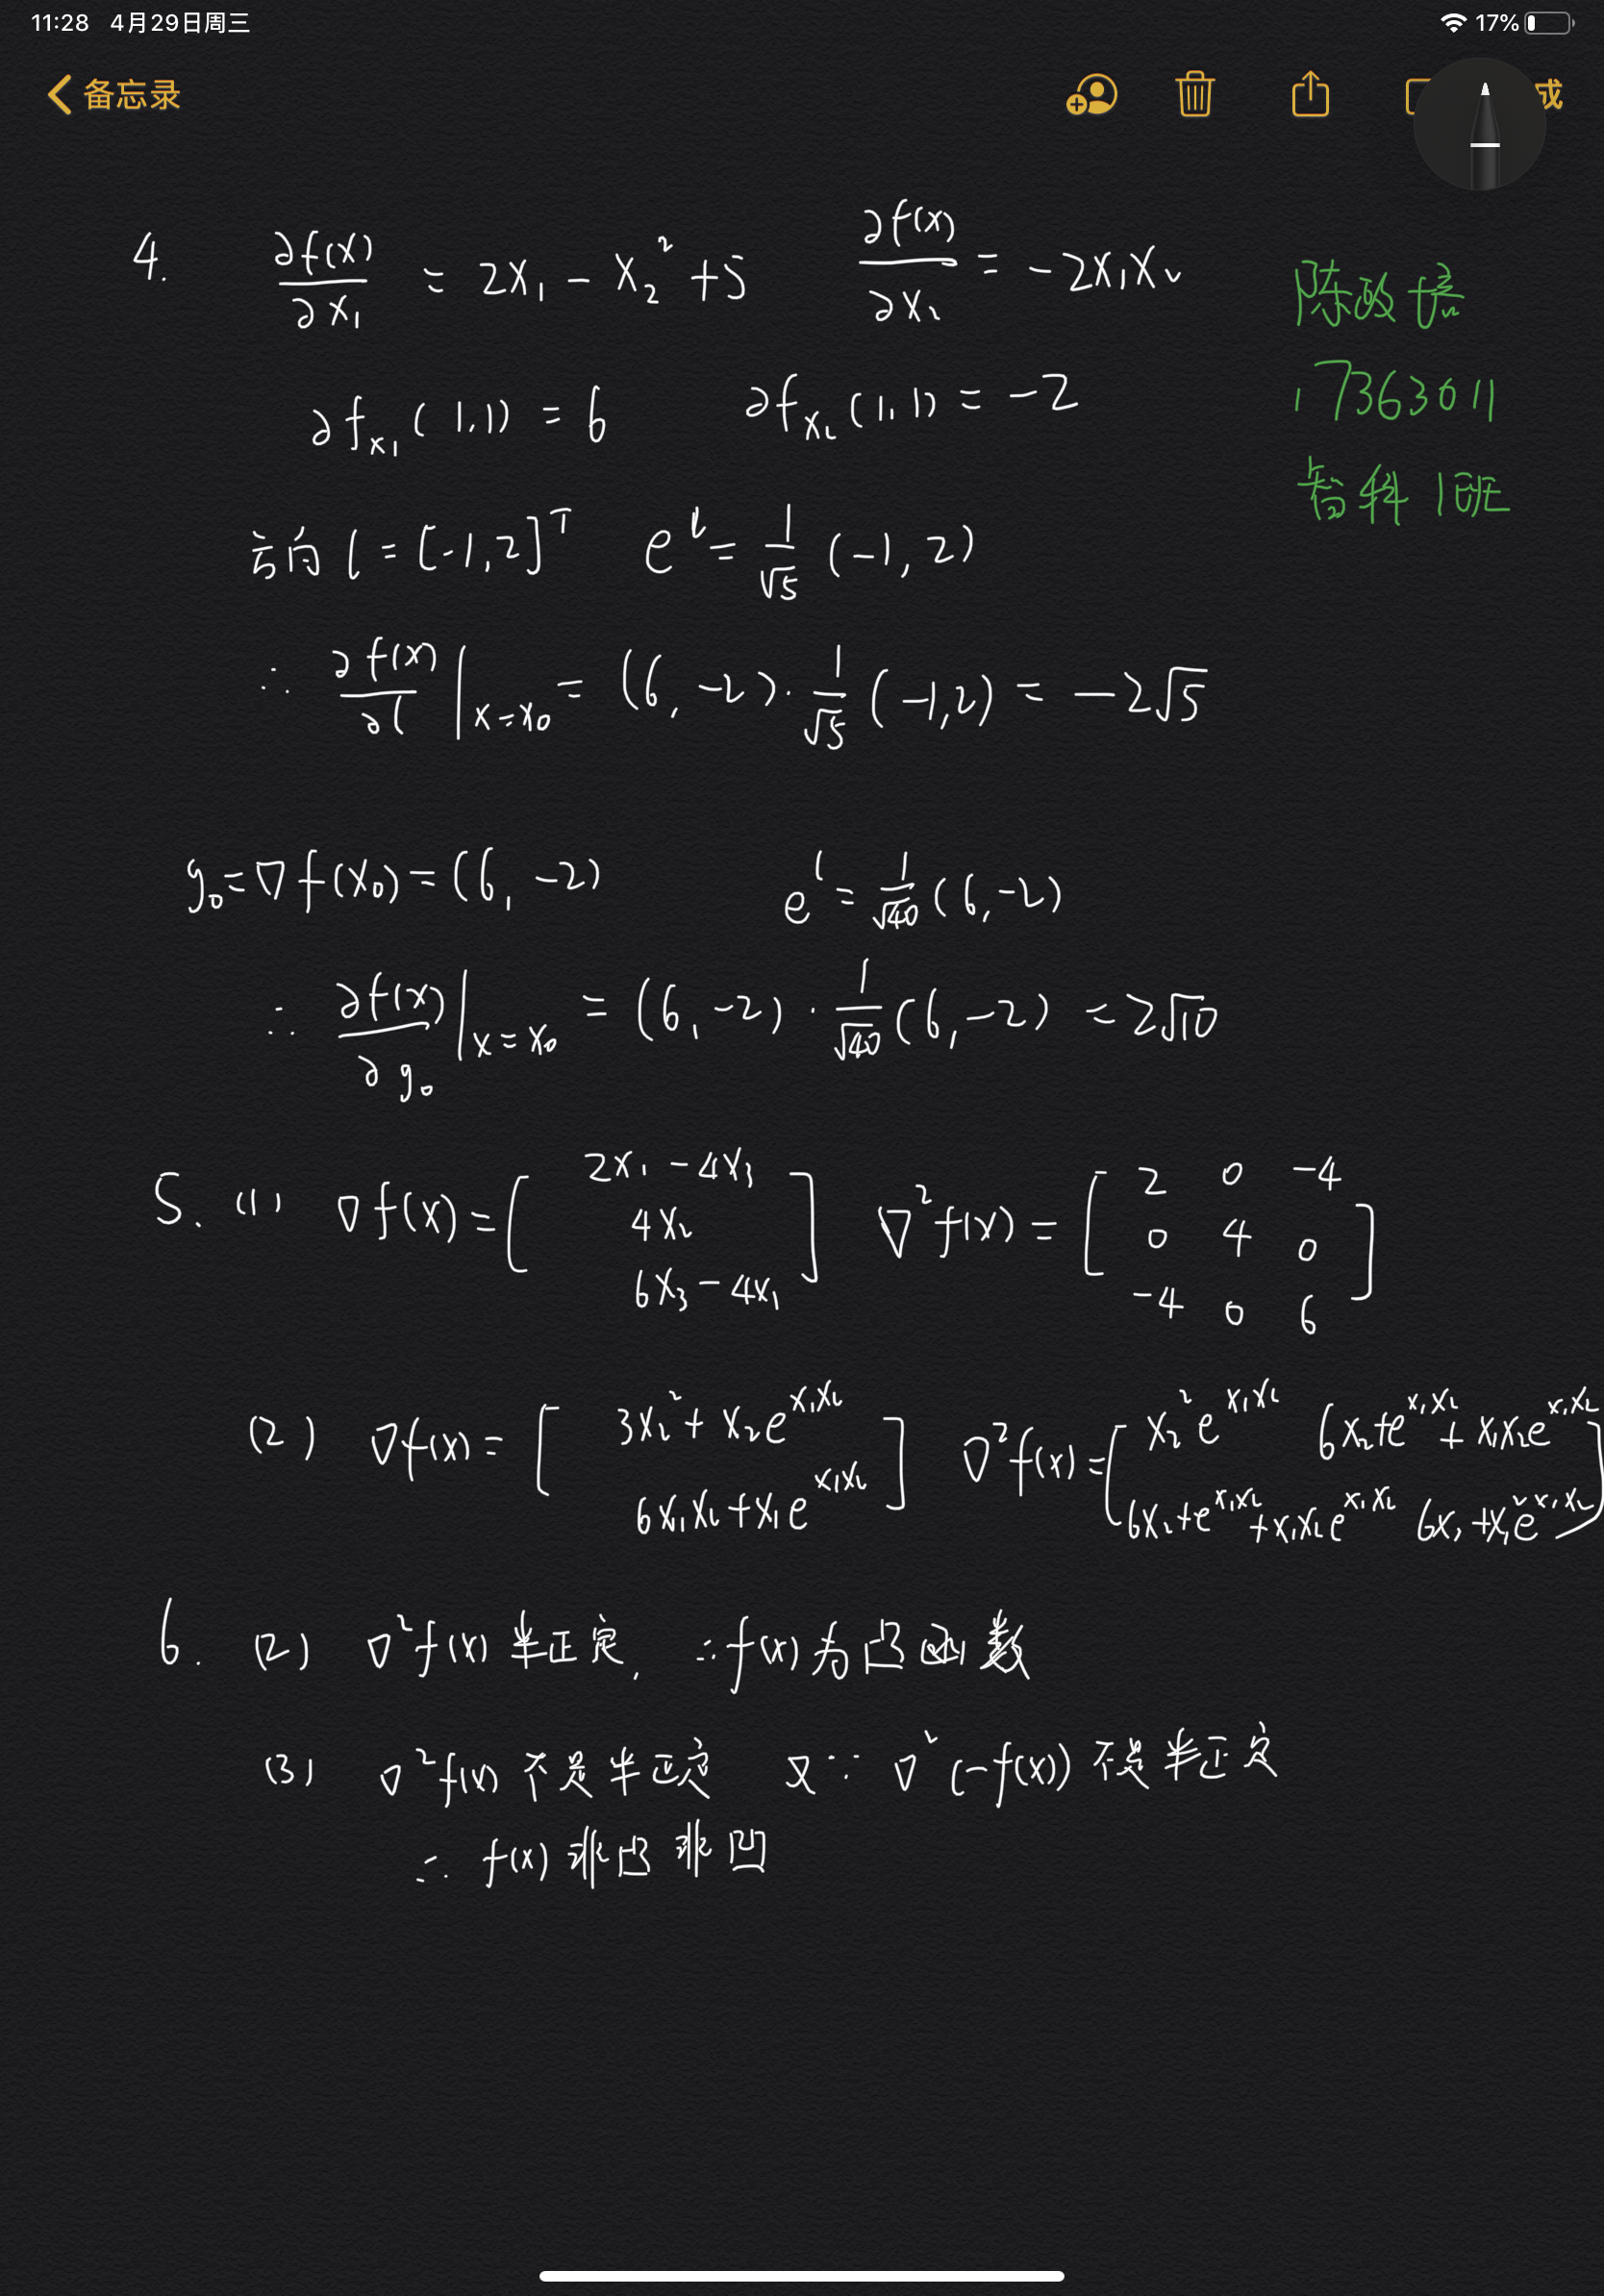 11:28 4月29日周三
17%
备忘录
成
4. ∂f(x)/∂x₁ = 2x₁ - x₂² + 5 ∂f(x)/∂x₂ = -2x₁x₂
陈政培
∂f_x₁(1,1) = 6 ∂f_x₂(1,1) = -2
17363011
智科1班
方向 l = [-1,2]ᵀ eˡ = 1/√5 (-1,2)
∴ ∂f(x)/∂l |x=x₀ = (6,-2)·1/√5 (-1,2) = -2√5
g₀ = ∇f(x₀) = (6,-2) eˡ = 1/√40 (6,-2)
∴ ∂f(x)/∂g₀ |x=x₀ = (6,-2)·1/√40 (6,-2) = 2√10
5. (1) ∇f(x) = [2x₁-4x₃; 4x₂; 6x₃-4x₁] ∇²f(x) = [2 0 -4; 0 4 0; -4 0 6]
(2) ∇f(x) = [3x₂²+x₂e^(x₁x₂); 6x₁x₂+x₁e^(x₁x₂)] ∇²f(x) = [x₂²e^(x₁x₂) 6x₂+e^(x₁x₂)+x₁x₂e^(x₁x₂); 6x₂+e^(x₁x₂)+x₁x₂e^(x₁x₂) 6x₁+x₁²e^(x₁x₂)]
6. (2) ∇²f(x) 半正定, ∴ f(x) 为凸函数
(3) ∇²f(x) 不是半正定 又∵ ∇²(-f(x)) 不是半正定
∴ f(x) 非凸非凹